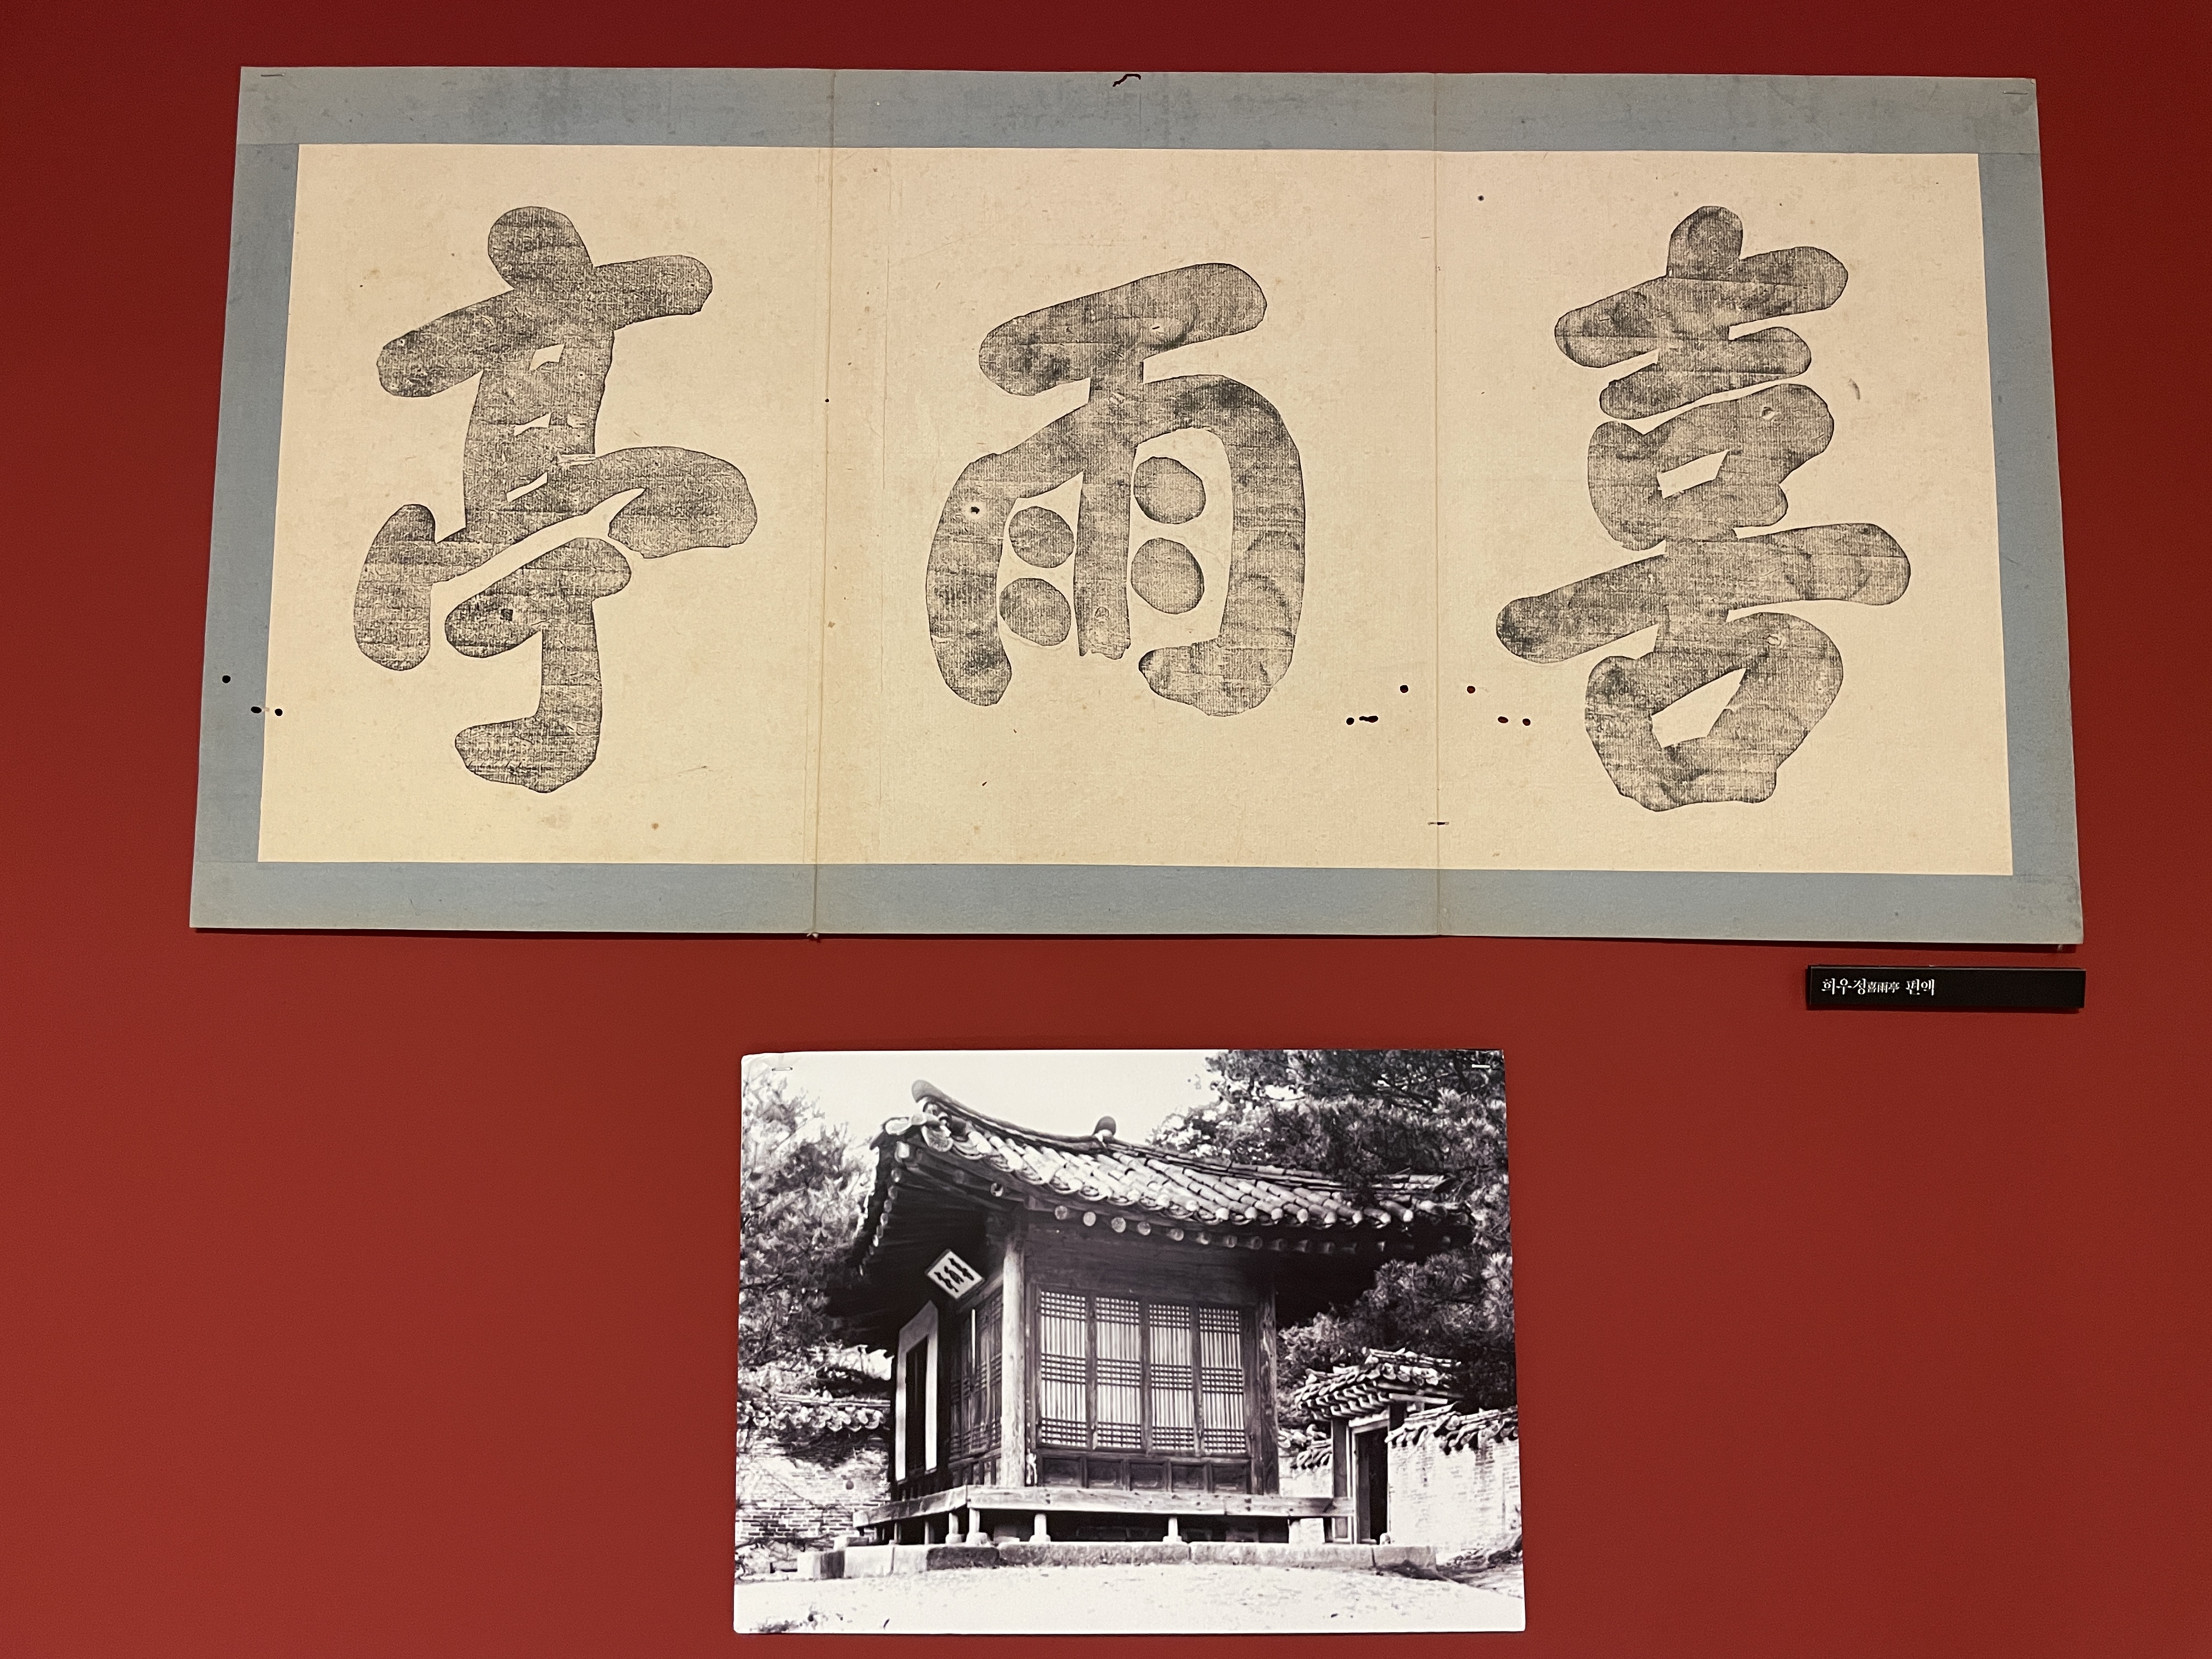 喜雨亭
희우정喜雨亭 편액